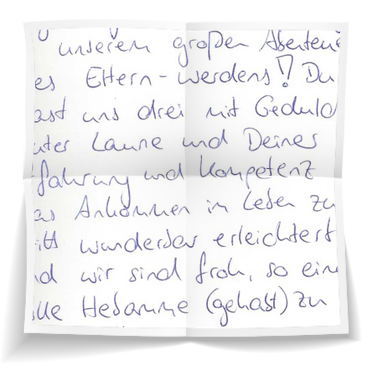 unserem großen Abenteue
es Eltern-werdens! Du
ast uns drei mit Geduld
uter Laune und Deiner
fahrung und Kompetenz
as Ankommen im Leben zu
itt wunderbar erleichtert
nd wir sind froh, so eine
lle Hebamme (gehabt) zu